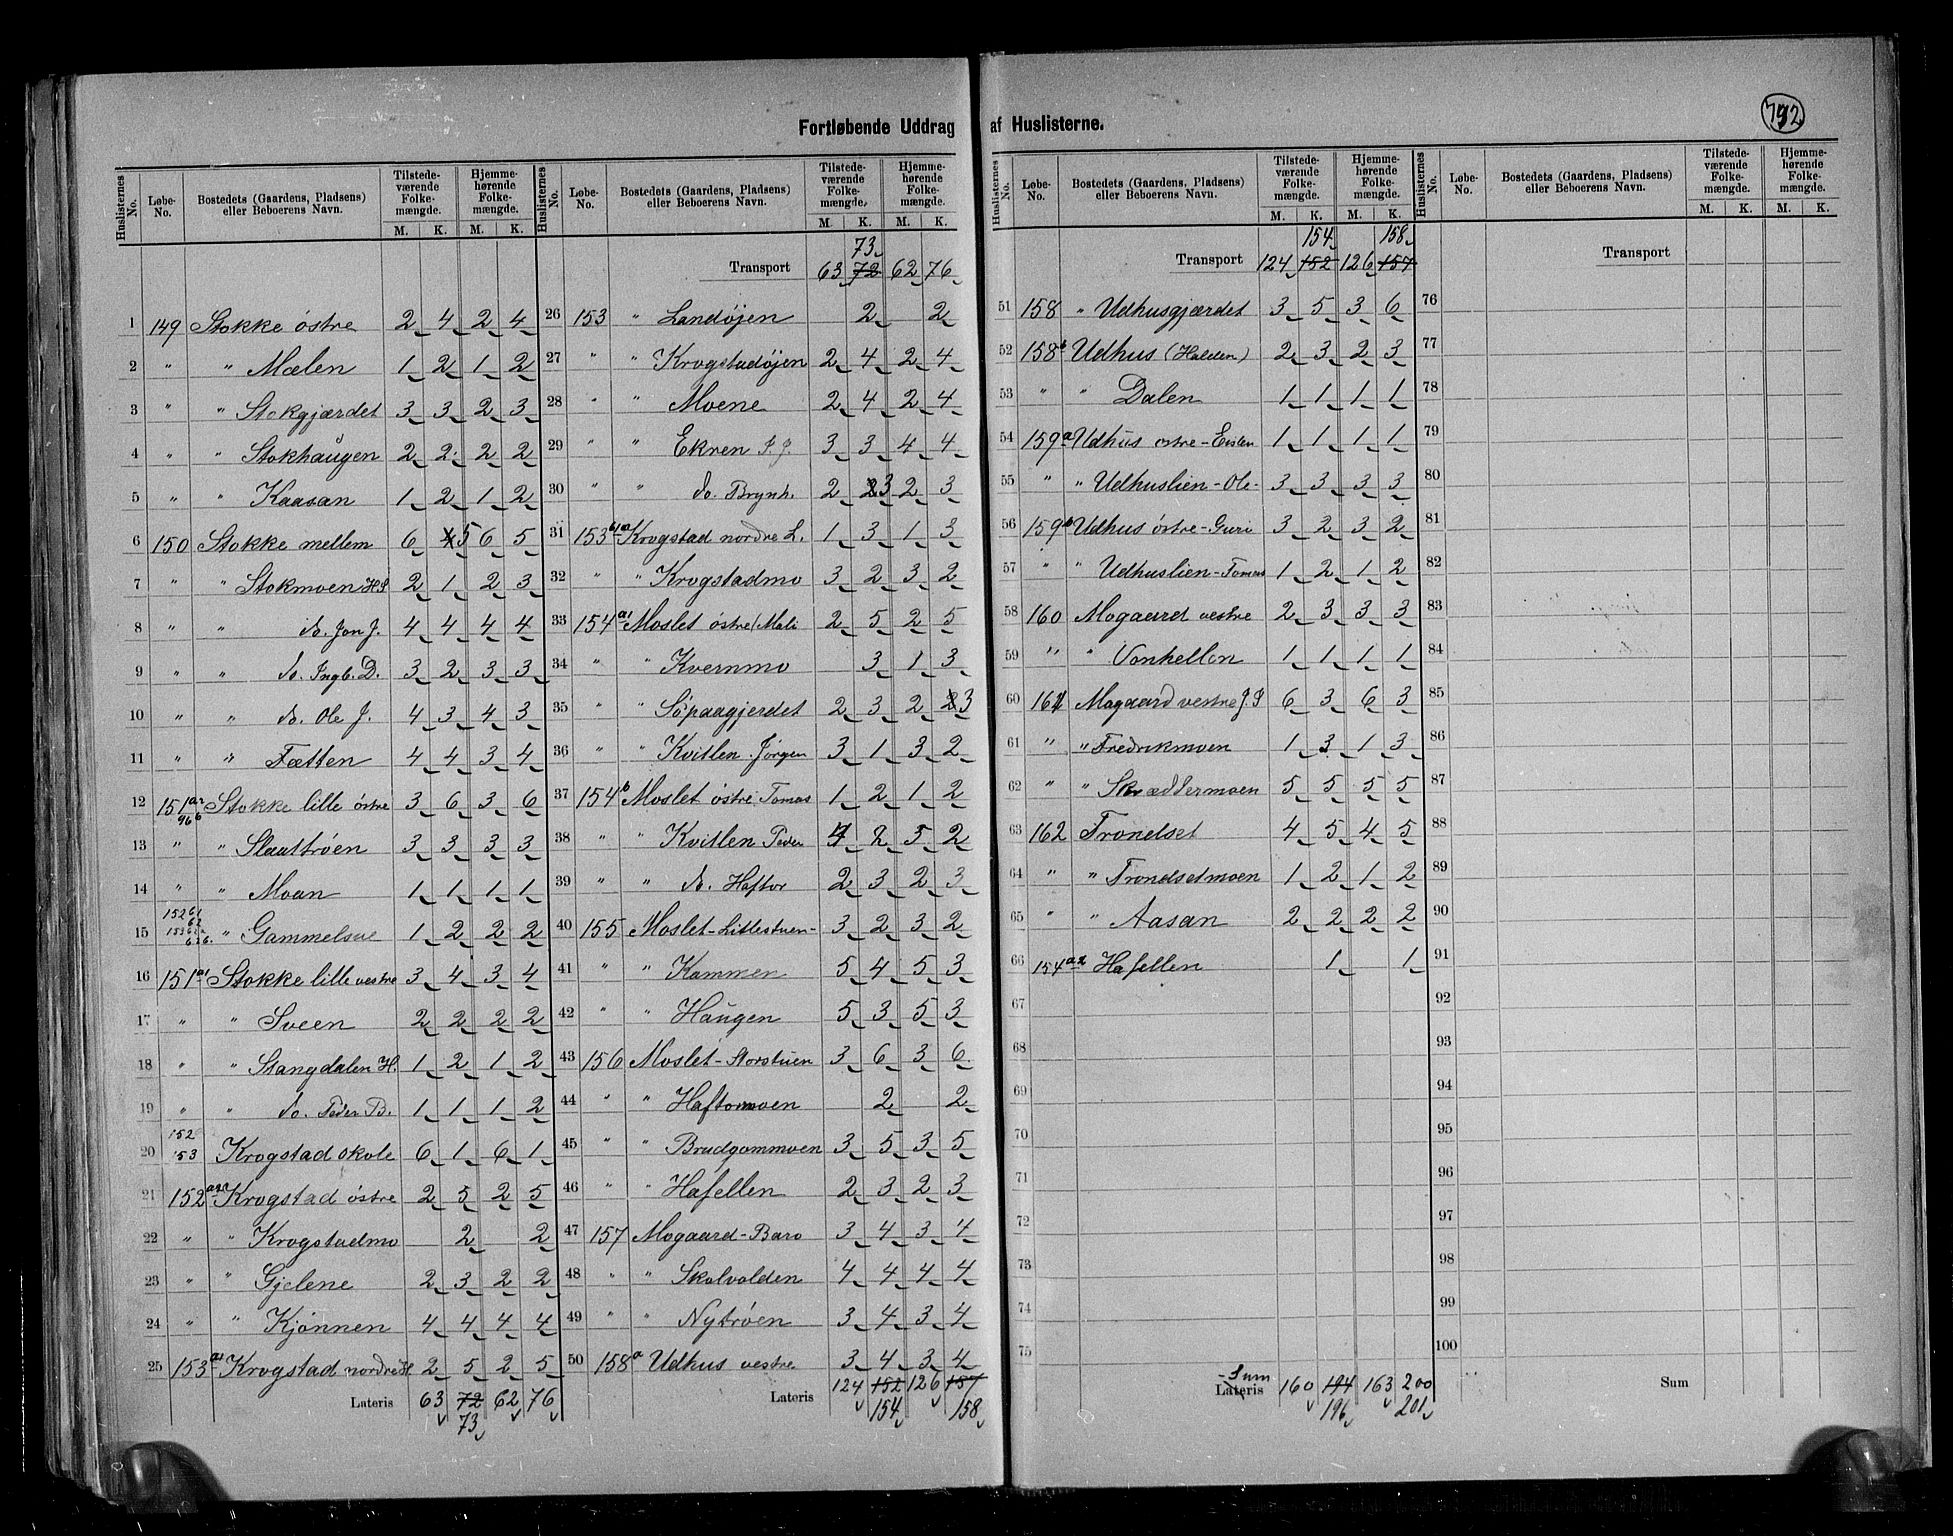 Fortløbende Uddrag af Huslisterne.
792
Huslisternes No. Løbe-No. Bostedets (Gaardens, Pladsens) eller Beboerens Navn. Tilstedeværende Folkemængde. M. K. Hjemmehørende Folkemængde. M. K.
1 149 Stokke østre 2 4 2 4
2 " " Mælen 1 2 1 2
3 " " Stokgjærdet 3 3 2 3
4 " " Stokhaugen 2 2 2 2
5 " " Kaasan 1 2 1 2
6 150 Stokke mellem 6 5 6 5
7 " " Stokmoen H.S. 2 1 2 3
8 " " do. Jon J. 4 4 4 4
9 " " do. Ingb. D. 3 2 3 3
10 " " do. Ole J. 4 3 4 3
11 " " Fætten 4 4 3 4
12 151 a2 og b Stokke lille østre 3 6 3 6
13 " " Slaattrøen 3 3 3 3
14 " " Moan 1 1 1 1
15 " Gammelsve 1 2 2 2
16 151 a1 Stokke lille vestre 3 4 3 4
17 " " Sveen 2 2 2 2
18 " " Stangdalen H. 1 2 1 2
19 " " do. Peder B. 1 1 1 2
20 152 153 Krogstad skole 6 1 6 1
21 152 a2 Krogstad østre 2 5 2 5
22 " " Krogstadmo 2 2
23 " " Gjelene 2 3 2 2
24 " " Kjønnen 4 4 4 4
25 153 a1 Krogstad nordre H. 2 5 2 5
Lateris 63 72 62 76
73
Huslisternes No. Løbe-No. Bostedets (Gaardens, Pladsens) eller Beboerens Navn. Tilstedeværende Folkemængde. M. K. Hjemmehørende Folkemængde. M. K.
73
Transport 63 72 62 76
26 153 " Landøjen 2 2
27 " " Krogstadøjen 2 4 2 4
28 " " Moene 2 4 2 4
29 " " Ekren I. J. 3 3 4 4
30 " " do. Brynh. 2 3 2 3
31 153 Krogstad nordre L. 1 3 1 3
32 " " Krogstadmo 3 2 3 2
33 154 a1 Moslet østre / Mali 2 5 2 5
34 " " Kvernmo 3 1 3
35 " " Söpaagjerdet 2 3 2 3
36 " " Kvitlen Jørgen 3 1 3 2
37 154 b Moslet østre Tomas 1 2 1 2
38 " " Kvitlen Peder 4 2 5 2
39 " " do. Haftor 2 3 2 3
40 155 Moslet-Littlestuen- 3 2 3 2
41 " " Kammen 5 4 5 3
42 " " Haugen 5 3 5 3
43 156 Moslet-Storstuen 3 6 3 6
44 " " Haftormoen 2 2
45 " " Brudgommoen 3 5 3 5
46 " " Hafellen 2 3 2 3
47 157 Mogaard-Baro 3 4 3 4
48 " " Skolvolden 4 4 4 4
49 " " Nytrøen 3 4 3 4
50 158 a Udhus vestre 3 4 3 4
Lateris 124 152 126 157
154 158
Huslisternes No. Løbe-No. Bostedets (Gaardens, Pladsens) eller Beboerens Navn. Tilstedeværende Folkemængde. M. K. Hjemmehørende Folkemængde. M. K.
154 158
Transport 124 152 126 157
51 158 " Udhusgjærdet 3 5 3 6
52 158 b Udhus (Halden) 2 3 2 3
53 " " Dalen 1 1 1 1
54 159 a Udhus østre-Eisten 1 1 1 1
55 " " Udhuslien-Ole- 3 3 3 3
56 159 b Udhus østre-Guri 3 2 3 2
57 " " Udhuslien-Tomas 1 2 1 2
58 160 Mogaard vestre 2 3 3 3
59 " " Vonhellen 1 1 1 1
60 161 Mogaard vestre J. S 6 3 6 3
61 " " Fredrikmoen 1 3 1 3
62 " " Skræddermoen 5 5 5 5
63 162 Trondset 4 5 4 5
64 " " Trondsetmoen 1 2 1 2
65 " " Aasan 2 2 2 2
66 154 a2 Hafellen 1 1
67
68
69
70
71
72
73
74
75
Sum
Lateris 160 194 163 200
196 201
Huslisternes No. Løbe-No. Bostedets (Gaardens, Pladsens) eller Beboerens Navn. Tilstedeværende Folkemængde. M. K. Hjemmehørende Folkemængde. M. K.
Transport
76
77
78
79
80
81
82
83
84
85
86
87
88
89
90
91
92
93
94
95
96
97
98
99
100
Sum